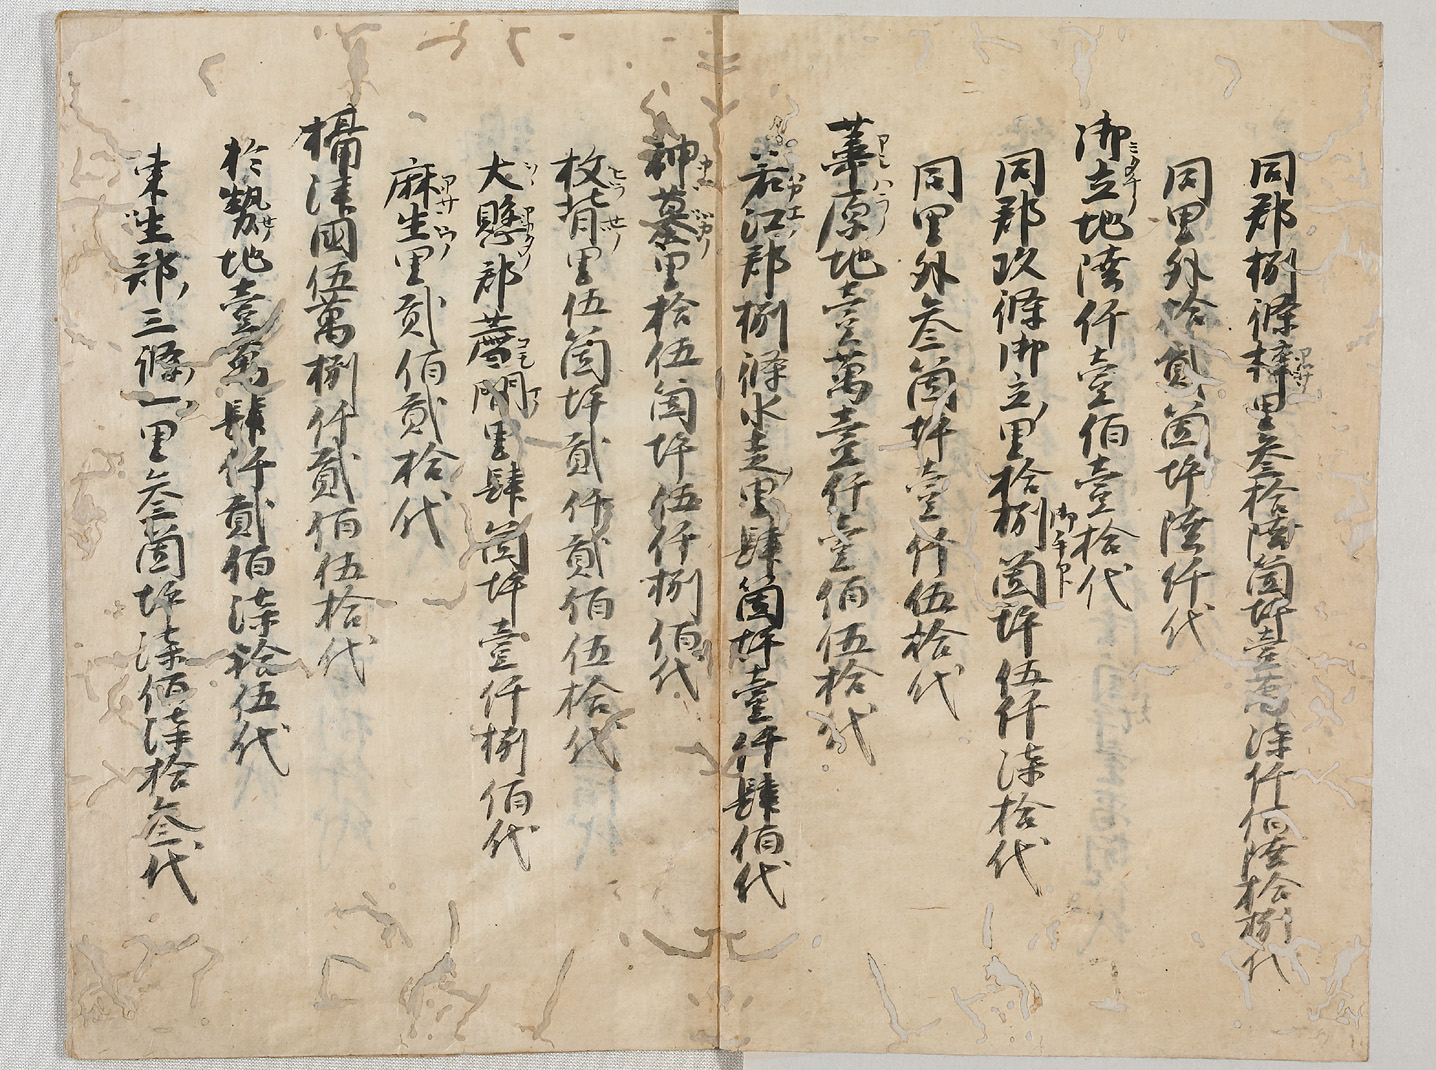 同郡捌條樟里叁拾陸箇坪壹萬柒仟佰陸拾捌代
同里外拾貳箇坪陸仟代
御立地陸仟壹佰壹拾代
同郡玖條御立里拾捌箇坪伍仟柒拾代
同里外叁箇坪壹仟伍拾代
葦原地壹萬壹仟壹佰伍拾代
若江郡捌條水走里肆箇坪壹仟肆佰代
神墓里拾伍箇坪伍仟捌佰代
枚背里伍箇坪貳仟貳佰伍拾代
大縣郡薦間里肆箇坪壹仟捌佰代
麻生里貳佰貳拾代
攝津國伍萬捌仟貳佰伍拾代
於勢地壹萬肆仟貳佰柒拾伍代
東生郡三條一里叁箇坪柒佰柒拾叁代